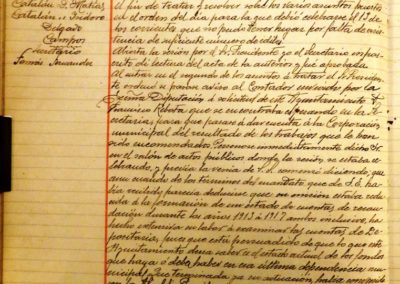 Catalán D. Matías
Catalán D. Isidoro
Delgado
Campos
Secretario
Tomás Fernandez
el fin de tratar y resolver sobre los varios asuntos puestos
en el orden del dia para la que debió celebrarse el 13 de
los corrientes que no pudo tener lugar por falta de asis-
tencia de suficiente numero de ediles.
Abierta la sesión por el Sr. Presidente yo el Secretario
di lectura del acta de la anterior y fué aprobada.
Al entrar en el segundo de los asuntos a tratar el Sr. Presiden-
te ordenó se pasara aviso al Contador enviado por la
Diputación a solicitud de este Ayuntamiento D.
Francisco que se encontraba esperando en la Se-
cretaría, para que pasase á dar cuenta á la Corporación
municipal del resultado de los trabajos que le han
sido encomendados. inmediatamente dicho Sr.
en el salón de actos públicos donde la sesión se estaba ce-
lebrando, y previa la venia de S.S. comenzó diciendo, que
aun cuando de los términos del mandato, que de S.E. ha-
bía recibido, parecía deducirse que su misión estaba redu-
cida á la formación de un estado de cuentas de recau-
dación durante los años 1913 á 1917 ambos inclusive, ha
hecho extensiva su labor á examinar las cuentas de De-
positaría, pues que está persuadido de que lo que este
Ayuntamiento desea saber es el estado actual de los fondos
que haya ó deba haber en esa última dependencia mu-
nicipal. Que terminada ya su actuación, había